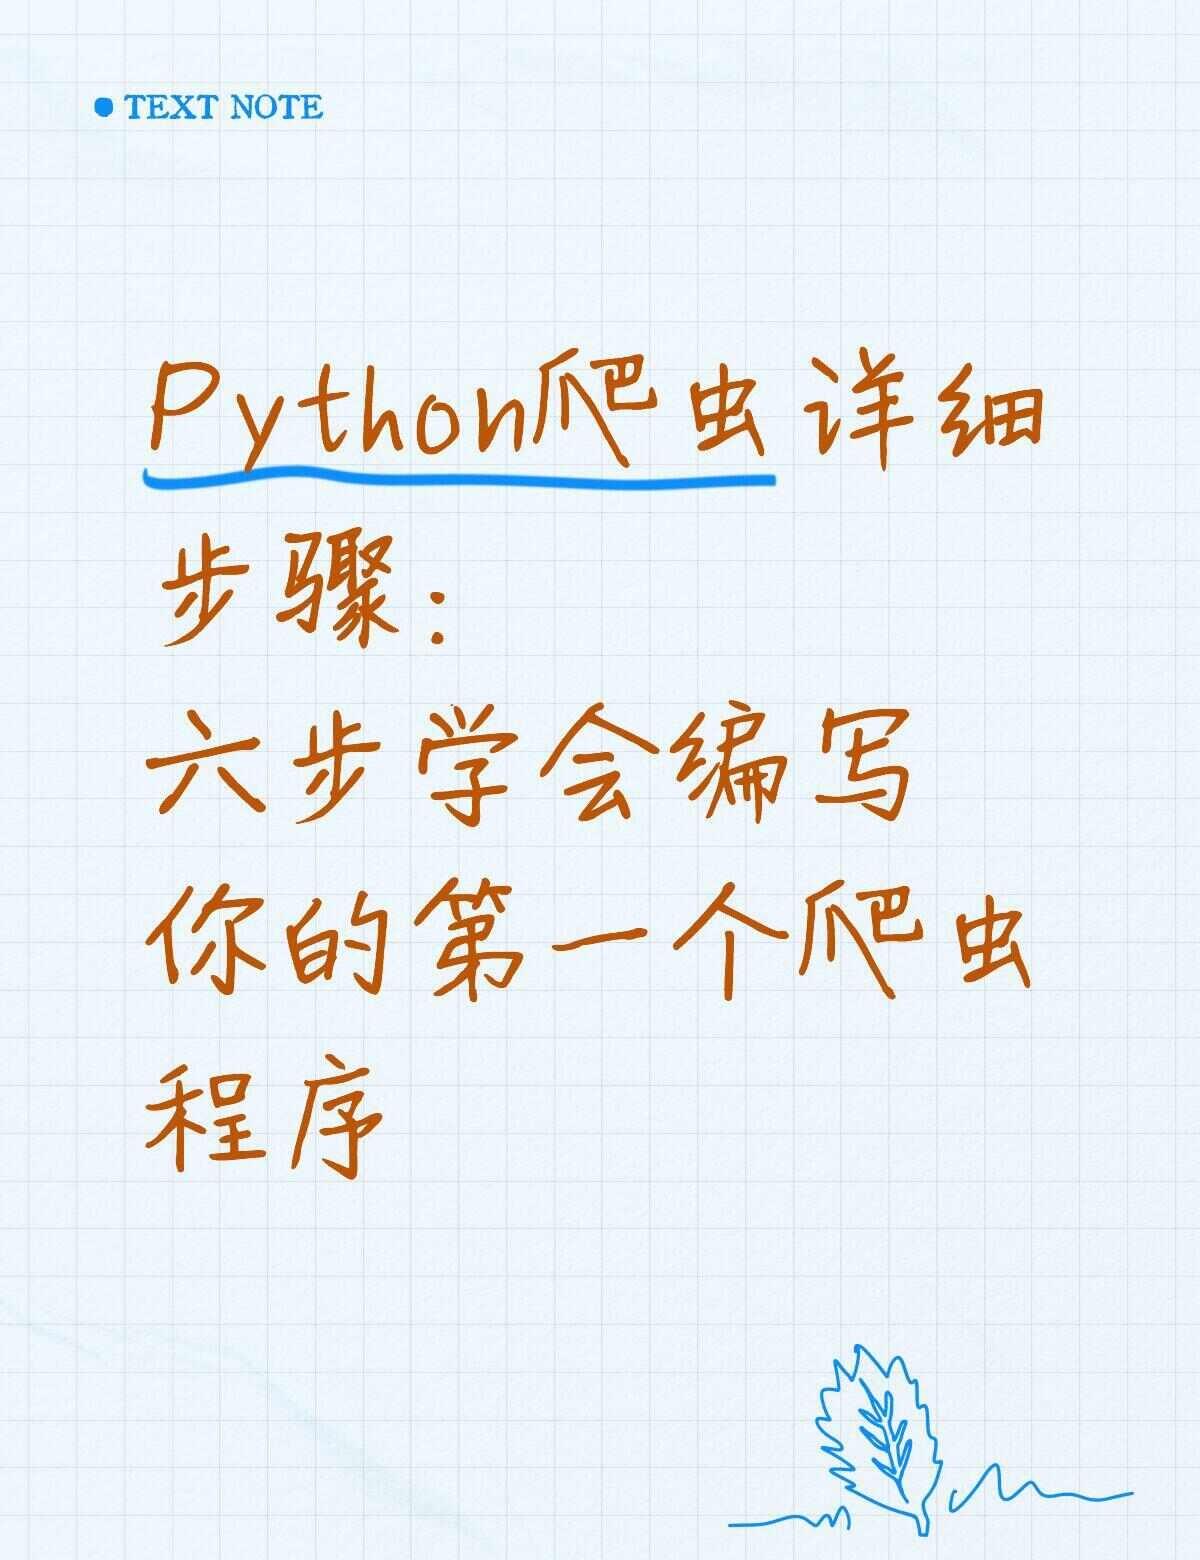 TEXT NOTE
Python爬虫详细
步骤:
六步学会编写
你的第一个爬虫
程序